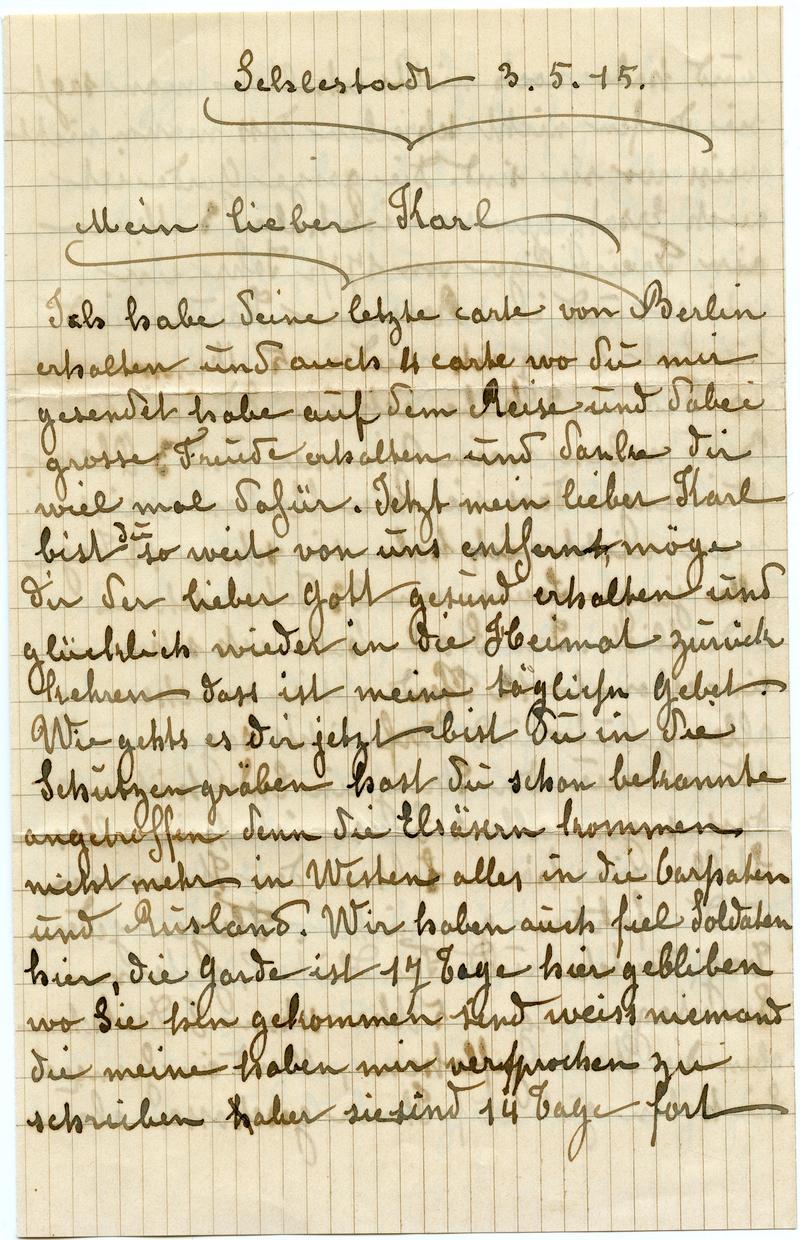 Schlestadt 3.5.15.
Mein lieber Karl
Ich habe deine letzte carte von Berlin
erhalten und auch 4 carte wo du mir
gesendet habe auf dem Reise und dabei
grosse Freude erhalten und danke dir
viel mal dafür. Jetzt mein lieber Karl
bist du so weit von uns entfernt, möge
dir der lieber Gott gesund erhalten und
glücklich wieder in die Heimat zurück
kehren dass ist meine täglichn Gebet.
Wie gehts es dir jetzt bist du in die
Schutzengräben hast du schon bekannte
angetroffen denn die Elsäsern kommen
nicht mehr in Westen alles in die Carpaten
und Rusland. Wir haben auch fiel Soldaten
hier, die Garde ist 17 Tage hier gebliben
wo Sie hin gekommen sind weiss niemand
die meine haben mir versprochen zu
schreiben haber sie sind 14 Tage fort